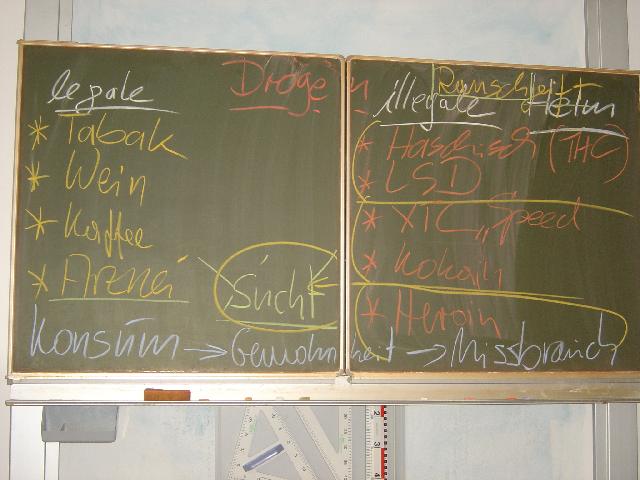 Drogen
legale
* Tabak
* Wein
* Kaffee
* Arznei
Sucht
illegale
* Haschisch (THC)
* LSD
* XTC „Speed
* Kokain
* Heroin
Konsum → Gewohnheit → Missbrauch